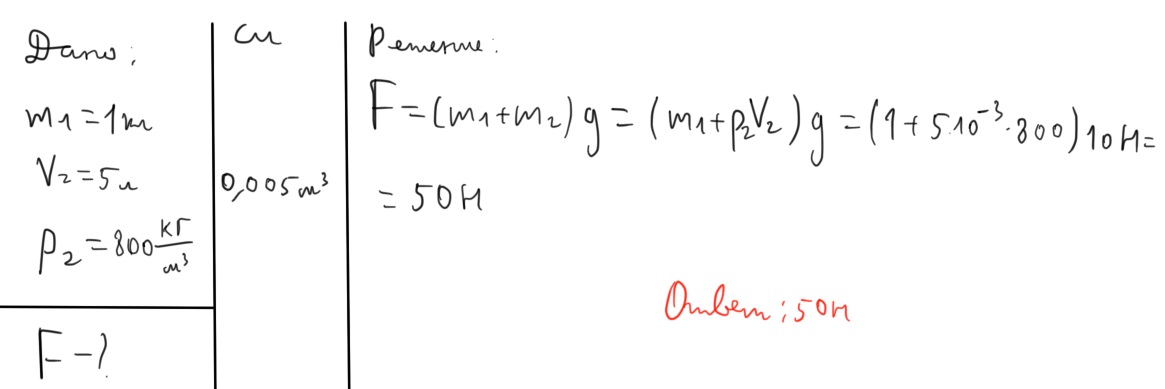 Дано:
m₁ = 1 кг
V₂ = 5 л
ρ₂ = 800 кг/м³
F - ?
СИ
0,005 м³
Решение:
F = (m₁ + m₂) g = (m₁ + ρ₂V₂) g = (1 + 5·10⁻³·800) 10 Н =
= 50 Н
Ответ: 50 Н